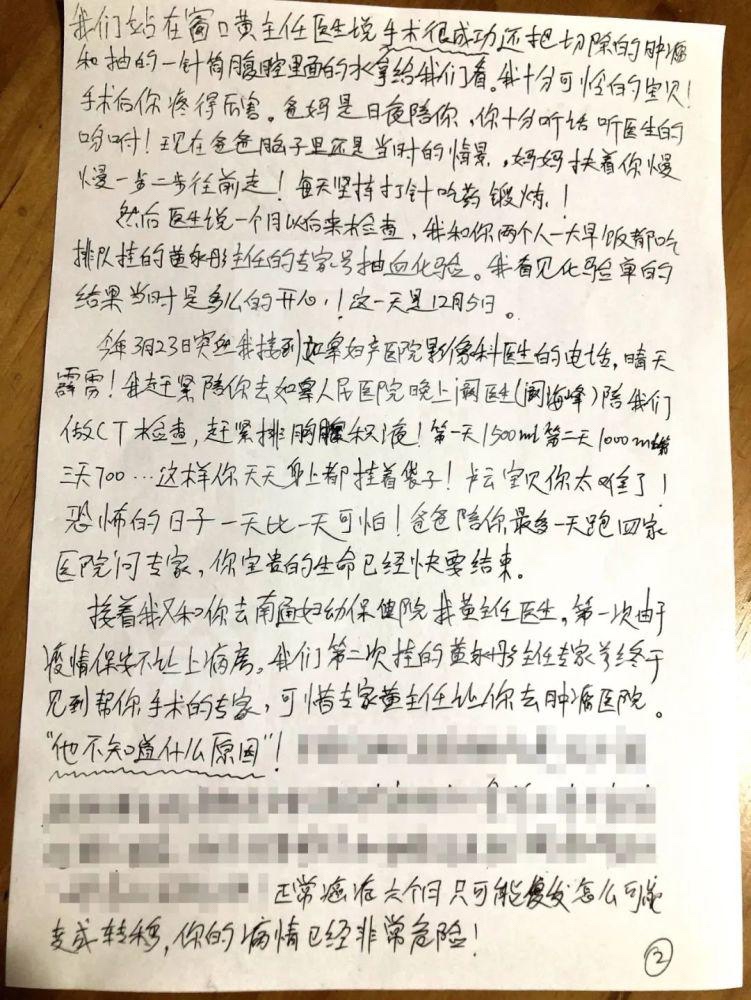 我们站在窗口黄主任医生说手术很成功还把切除的肿瘤
和抽的一针筒腹腔里面的水拿给我们看。我十分可怜的宝贝!
手术后你疼得厉害。爸妈是日夜陪你,你十分听话听医生的
吩咐!现在爸爸脑子里还是当时的情景,妈妈扶着你慢
慢一步二步往前走!每天坚持打针吃药锻炼!
然后医生说一个月以后来检查,我和你两个人一大早饭都吃
排队挂的黄主任的专家号抽血化验。我看见化验单的
结果当时是多么的开心!这一天是12月5日。
今年3月23日突然我接到如皋妇产医院影像科医生的电话,晴天
霹雳!我赶紧陪你去如皋人民医院晚上阚医生(阚海峰)陪我们
做CT检查,赶紧排胸腔积液!第一天1500ml第二天1000ml第
三天700…这样你天天身上都挂着袋子!卡云宝贝你太难了!
恐怖的日子一天比一天可怕!爸爸陪你最多一天跑四家
医院问专家,你宝贵的生命已经快要结束。
接着我又和你去南通妇幼保健院找黄主任医生,第一次由于
疫情保安不让上病房。我们第二次挂的黄主任专家号终于
见到帮你手术的专家,可惜专家黄主任让你去肿瘤医院。
“他不知道什么原因”!
正常癌症六个月只可能复发怎么可能
变成转移,你的病情已经非常危险!
②